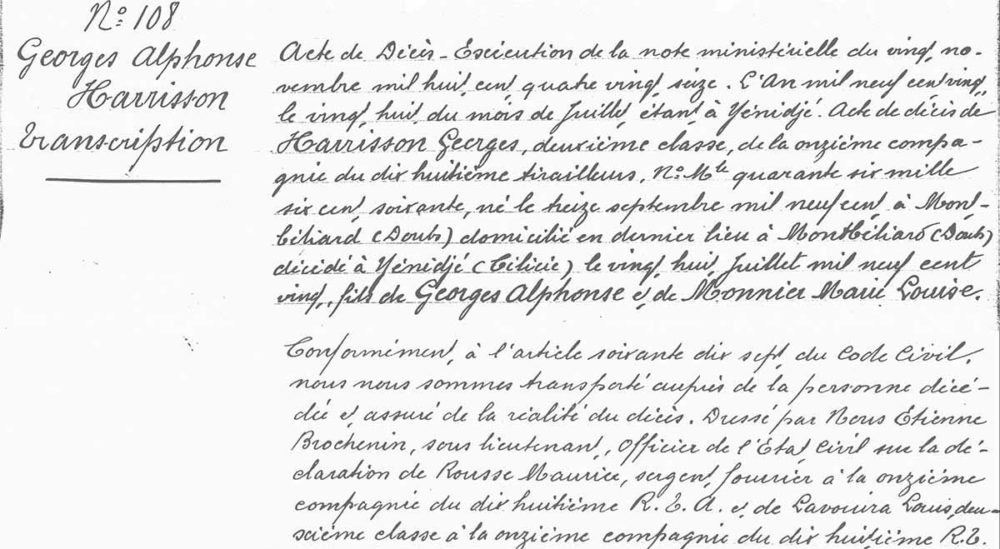 No: 108
Georges Alphonse
Harrisson
transcription
Acte de Décès - Exécution de la note ministérielle du vingt no-
vembre mil huit cent quatre vingt seize. L'An mil neuf cent vingt
le vingt huit du mois de Juillet étant à Yénidjé. Acte de décès de
Harrisson Georges, deuxième classe, de la onzième compa-
gnie du dix huitième tirailleurs, No: Mle quarante six mille
six cent soixante, né le treize septembre mil neuf cent à Mont-
béliard (Doubs) domicilié en dernier lieu à Montbéliard (Doubs)
décédé à Yénidjé (Cilicie) le vingt huit Juillet mil neuf cent
vingt, fils de Georges Alphonse et de Monnier Marie Louise.
Conformément à l'article soixante dix sept du Code Civil,
nous nous sommes transporté auprès de la personne décé-
dée et assuré de la réalité du décès. Dressé par Nous Etienne
Brochenin, sous lieutenant, Officier de l'Etat Civil sur la dé-
claration de Rousse Maurice, sergent fourrier à la onzième
compagnie du dix huitième R. T. A. et de Lavouira Louis, deu-
xième classe à la onzième compagnie du dix huitième R.T.